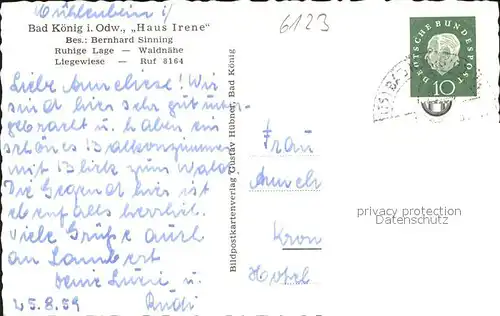 Mühlenbein i/
Bad König i. Odw., „Haus Irene"
Bes.: Bernhard Sinning
Ruhige Lage — Waldnähe
Liegewiese — Ruf 8164
6123
DEUTSCHE BUNDESPOST
10
Liebe Anneliese! Wir
sind hier sehr gut unter-
gebracht u. haben ein
schönes Balkonzimmer
mit Blick zum Wald.
Die Gegend hier ist
ebenfalls herrlich.
Viele Grüße auch
an Lambert
Deine u.
25.8.59 Rudi
Bildpostkartenverlag Gustav Hübner, Bad König
Frau
privacy protection
Datenschutz